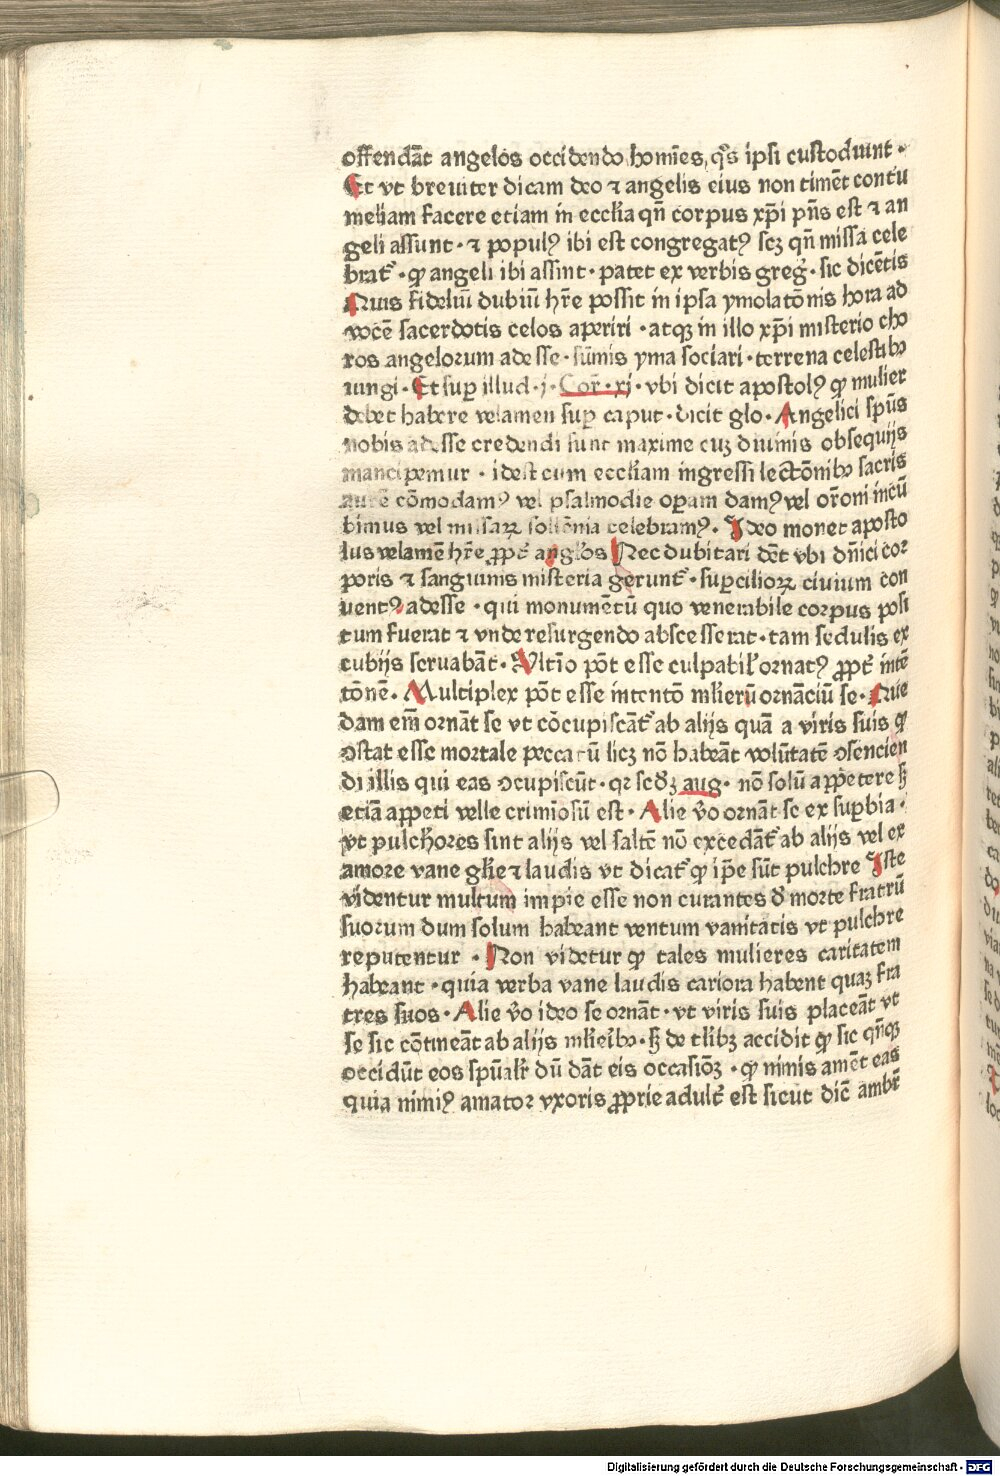 offendāt angelos occidendo homīes, q̄s ipsi custodiunt ·
Et vt breuiter dicam deo ⁊ angelis eius non timēt contu
meliam facere etiam in ecclīa qn̄ corpus xp̄i pn̄s est ⁊ an
geli assunt · ⁊ populꝰ ibi est congregatꝰ scꝫ qn̄ missa cele
brat᷑ · ꝙ angeli ibi assint · patet ex verbis greḡ · sic dicētis
Quis fideliū dubiū hr̄e possit in ipsa ymolatōnis hora ad
vocē sacerdotis celos aperiri · atqꝫ in illo xp̄i misterio cho
ros angelorum adesse · sūmis yma sociari · terrena celestibꝰ
iungi · Et suꝑ illud · j · Cor̄ · xj · vbi dicit apostolꝰ ꝙ mulier
debet habere velamen suꝑ caput · dicit glo · Angelici sp̄us
nobis adesse credendi sunt maxime cuꝫ diuinis obsequijs
mancipemur · idest cum eccliam ingressi lectōnibꝰ sacris
aurē cōmodamꝰ vel psalmodie oꝑam damꝰ vel or̄oni incū
bimus vel missaꝝ sollēnia celebramꝰ · Ideo monet aposto
lus velamē hr̄e ꝓpt̄ angl̄os Nec dubitari dēt vbi dn̄ici cor
poris ⁊ sanguinis misteria gerunt᷑ · suꝑcilioꝝ ciuium con
uentꝰ adesse · qui monumētū quo venerabile corpus posi
tum fuerat ⁊ vnde resurgendo abscesserat · tam sedulis ex
cubijs seruabāt · Vltīo pōt esse culpabil̄ ornatꝰ ꝓpt̄ intē
tōnē · Multiplex pōt esse intentō ml̄ierū ornāciū se · Que
dam em̄ ornāt se vt cōcupiscāt᷑ ab alijs quā a viris suis ꝙ
ↄstat esse mortale peccatū licꝫ nō habeāt volūtatē ↄsencien
di illis qui eas ↄcupiscūt · qꝛ scd̄ꝫ aug · nō solū appetere sꝫ
etiā appeti velle crimīosū est · Alie v̄o ornāt se ex suꝑbia ·
vt pulchꝛiores sint alijs vel saltē nō excedāt᷑ ab alijs vel ex
amore vane gl̄ie ⁊ laudis vt dicat᷑ ꝙ ip̄e sūt pulchre Iste
videntur multum impie esse non curantes d̄ morte fratrū
suorum dum solum habeant ventum vanitatis vt pulchre
reputentur · Non videtur ꝙ tales mulieres caritatem
habeant · quia verba vane laudis cariora habent quaꝫ fra
tres suos · Alie v̄o ideo se ornāt · vt viris suis placeāt vt
se sic cōtineāt ab alijs ml̄ieibꝰ · sꝫ de tl̄ibꝫ accidit ꝙ sic qn̄qꝫ
occidūt eos sp̄ual̄r dū dāt eis occasiōꝫ · ꝙ nimis amēt eas
quia nimiꝰ amator vxoris ꝓprie adult᷑ est sicut dic̄ ambr̄
Digitalisierung gefördert durch die Deutsche Forschungsgemeinschaft · DFG